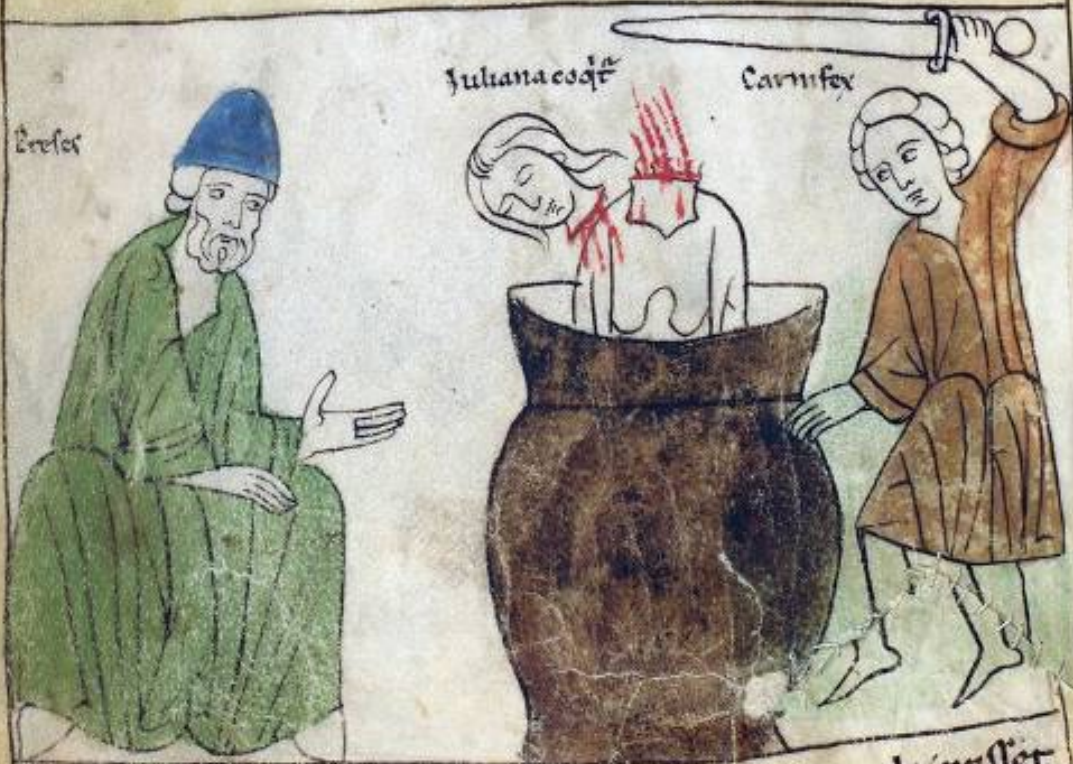 Preses
Iuliana coqͥt
Carnifex